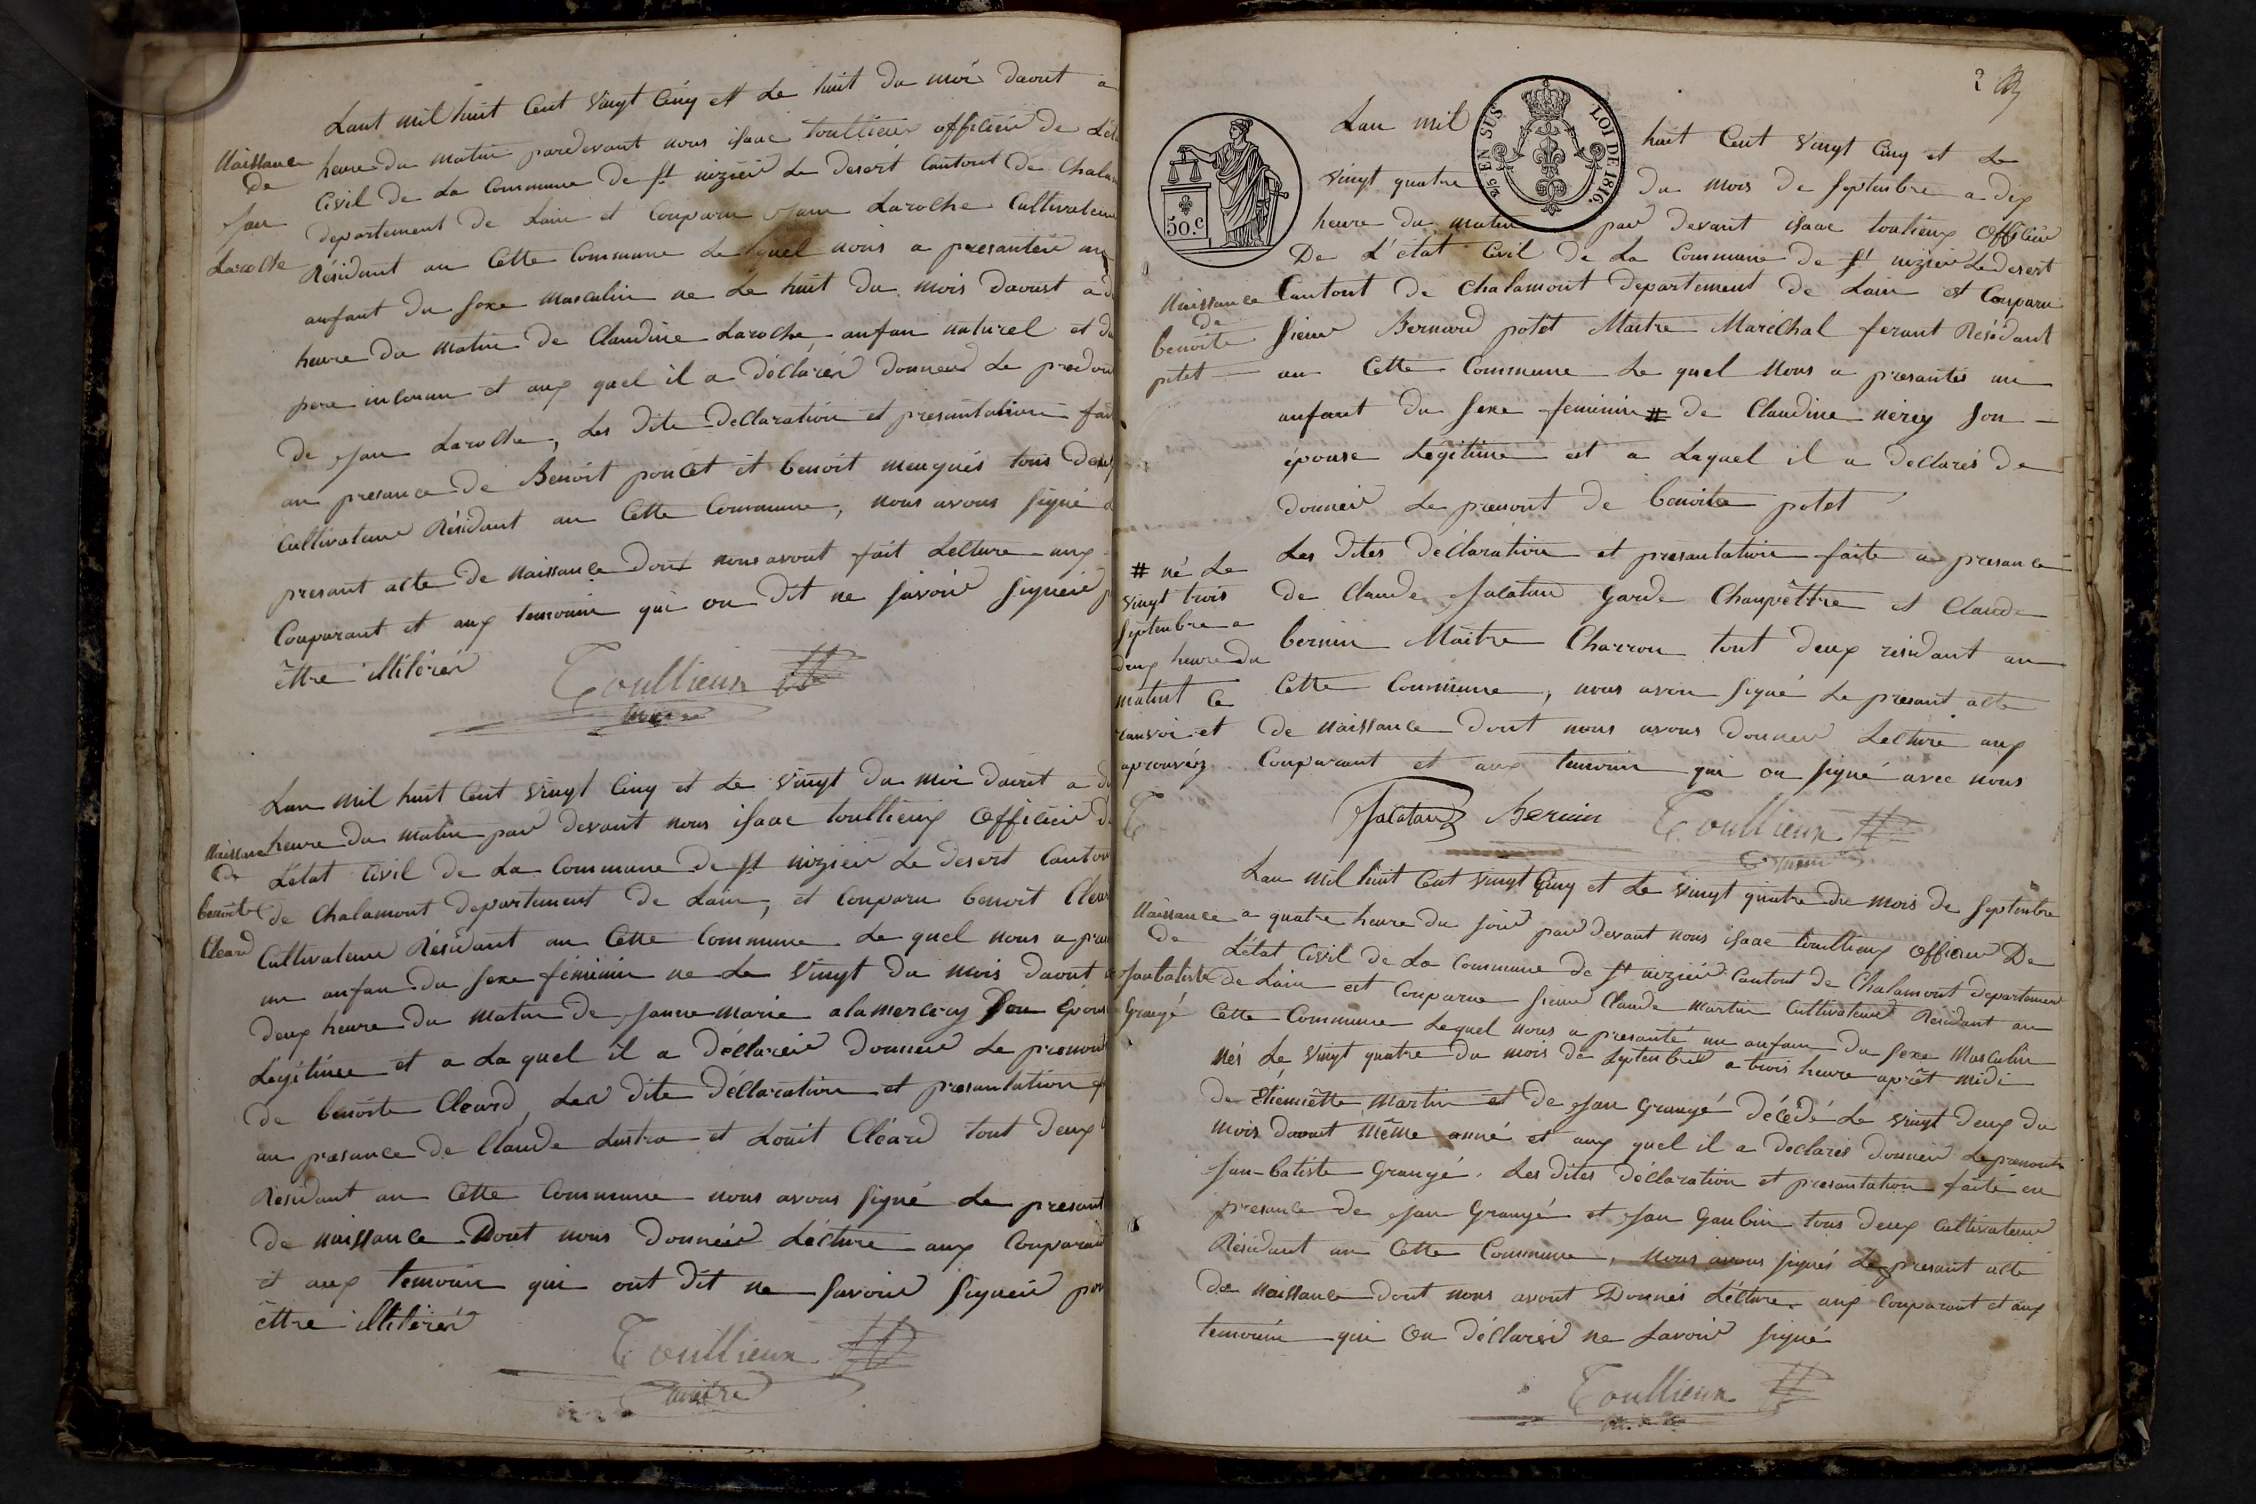 Lant mil huit Cent vingt Cinq et Le huit du moi daout a
Naissance
De
Jan
Laroche
heure du matin pardevant nous isaac toullieux officier de L'et
Civil de La Commune de St nizier Le desert Cantont De Chala
departement de Lain et Conparu Jam Laroche Cultivateur
Résidant an Cette Commune Le quel nous a presanteir un
anfant du sexe masculin ne Le huit du mois daoust a d
heure du matin de Claudine Laroche anfan naturel et du
pere inconnu et aux quel il a déclarér donneer Le predon
de Jan Laroche, Les dite declaration et presantation fai
an presance de Benoit poncet et benoit meuguis tous deux
Cultivateur Résidant an Cette Commune, nous avons signé
presant acte de naissance dont nous avont fait Lecture aux
Conparant et aux temoin qui on dit ne savoir signeir p
être illitérér
Toullieux
maire
Lan mil huit Cent vingt Cinq et Le vingt du moi daout a d
Naissance
de
benoite
Cleard
heure du matin par devant nous isaac toullieux officier d
L'etat Civil de La Commune de St nizier Le desert Canton
de Chalamont departement de Lain, et Conparu benoit Clear
Cultivateur Résidant an Cette Commune Le quel nous a pres
un anfan du sexe féminin ne Le vingt du mois daout a
deux heure du matin de Janne marie alamercery son Epous
Légitime et a La quel il a déclareir donneer Le prenom
de benoite Cleard, Les dite déclaration et presantation f
an presance de Claude Lustra et Louit Cléard tout deux
Résidant an Cette Commune nous avons signé Le presant
de naissance Dont nous donneér Lécture aux Conparant
et aux temoin qui ont dit ne savoir signeir pour
être illitérér
Toullieux
maire
2
50.C
25 EN SUS
LOI DE 1816.
Lan mil huit Cent vingt Cinq et Le
vingt quatre du mois de Septenbre a dix
heure du matin par devant isaac toulieux officier
De L'état Civil de La Commune de St nizier Le desert
Naissance
de
benoite
potet
Cantont de Chalamont departement de Lain et Conparu
sieur Bernard potet Maitre Maréchal ferant Résidant
an Cette Commune Le quel Nous a presantés un
anfant du sexe feminin # de Claudine nérey son
épouse Légitime et a Laquel il a declarés de
donneir Le prenont de benoite potet
# né Le
vingt trois
septenbre a
deux heure du
matint Ce
ranvoi et
aprouvéz
T
Les dites Déclaration et presantation faite an presance
de Claude Jalatan Garde Chanpêttre et Claude
bernin Maitre Charron tout deux residant an
Cette Commune, nous avon signé Le presant acte
de naissance dont nous avons donneer Lecture aux
Conparant et aux temoin qui on signé avec nous
Jalatan Bernin Toullieux
maire
Lan mil huit Cent vingt Cinq et Le vingt quatre du mois de Septenbre
Naissance
De
Janbatiste
Grangé
a quatre heure du soir par devant nous isaac toullieux officier De
L'état Civil de La Commune de St nizier Cantont de Chalamont departement
de Lain et Conparue sieur Claude martin Cultivateur Residant an
Cette Commune Lequel nous a presanté un anfan du sexe Masculin
nés Le vingt quatre du mois de Septenbre a trois heure aprêt midi
de Etiennette martin et de Jan Grangé décédé Le vingt deux du
mois daout même anné et aux quel il a declarés donneir Le prenont
Jan-batiste Grangé. Les dites déclaration et presantation faité en
presance de Jan Grangé et Jan Gaubin tous deux Cultivateur
Résidant an Cette Commune, Nous avons signés Le presant acte
de Naissance dont nous avont Donnés Lécture aux Conparant et aux
temoin qui on déclarér ne savoir signé
Toullieux